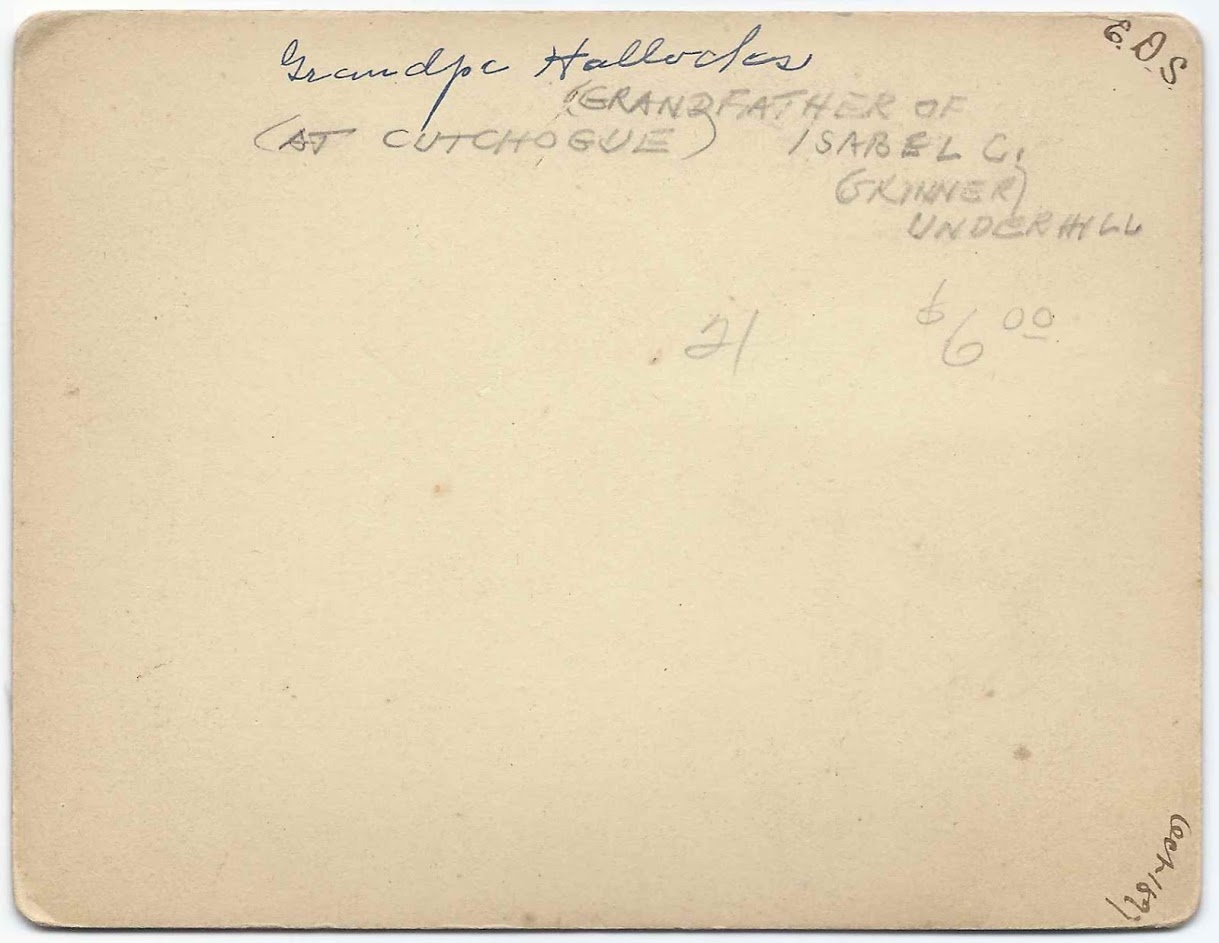 E.D.S.
Grandpa Hallocks
(GRANDFATHER OF
(AT CUTCHOGUE) ISABEL C.
(SKINNER)
UNDERHILL
21 $6.00